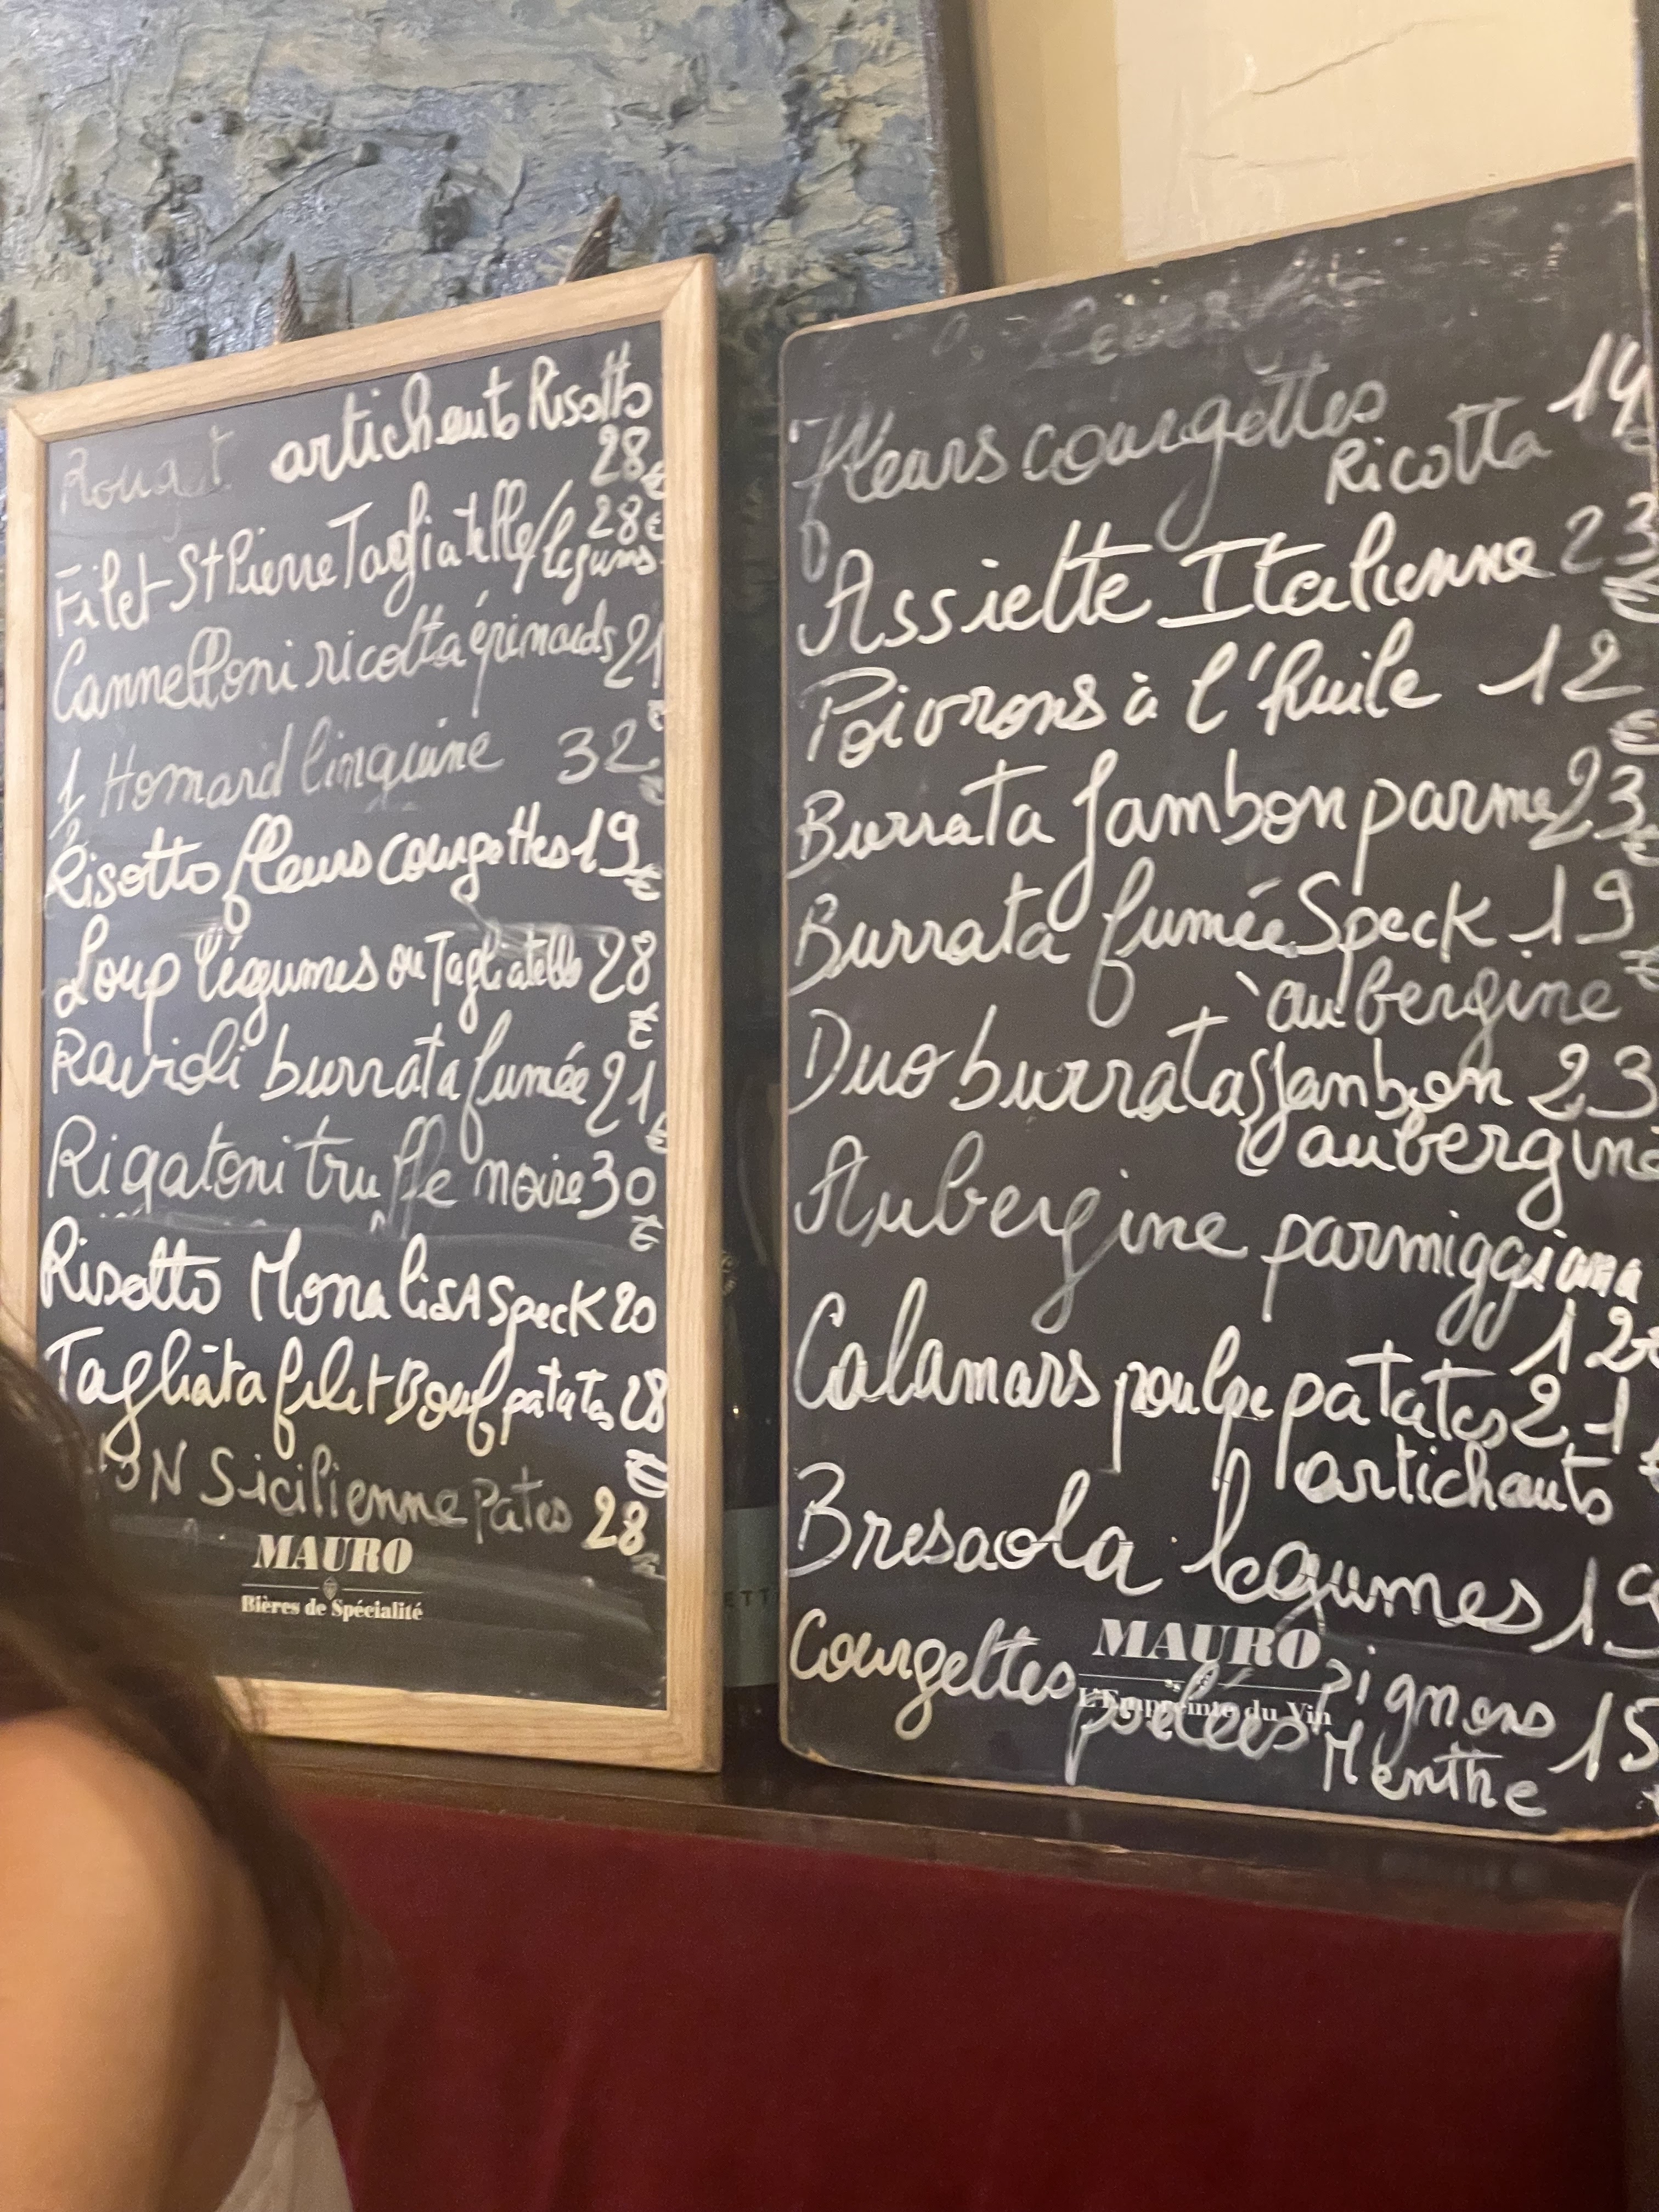 Rouget artichauts Risotto
28€
Filet St Pierre Tagliatelle/légumes 28€
Cannelloni ricotta épinards 21€
1/2 Homard linguine 32€
Risotto fleurs courgettes 19€
Loup légumes ou Tagliatelle 28€
Ravioli burrata fumée 21€
Rigatoni truffe noire 30€
Risotto Mona lisA Speck 20
Tagliata filet Bœuf patates 28€
Sicilienne Pates 28€
MAURO
Bières de Spécialité
fleurs courgettes 14€
Ricotta
Assiette Italienne 23€
Poivrons à l'huile 12€
Burrata Jambon parme 23€
Burrata fumée Speck 19€
aubergine
Duo burratas Jambon 23
aubergine
Aubergine parmiggiana
12€
Calamars poulpe patates 21€
artichauts
Bresaola legumes 19
Courgettes poelées Pignons 15€
Menthe
MAURO
L'Empreinte du Vin
ETT